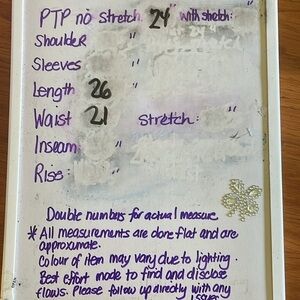 PTP no stretch 24" with stretch: "
Shoulder "
Sleeves "
Length 26 "
Waist 21 " stretch: "
Inseam "
Rise: "
Double numbers for actual measure
* All measurements are done flat and are
approximate.
Colour of item may vary due to lighting.
Best effort made to find and disclose
flaws. Please follow up directly with any
issues